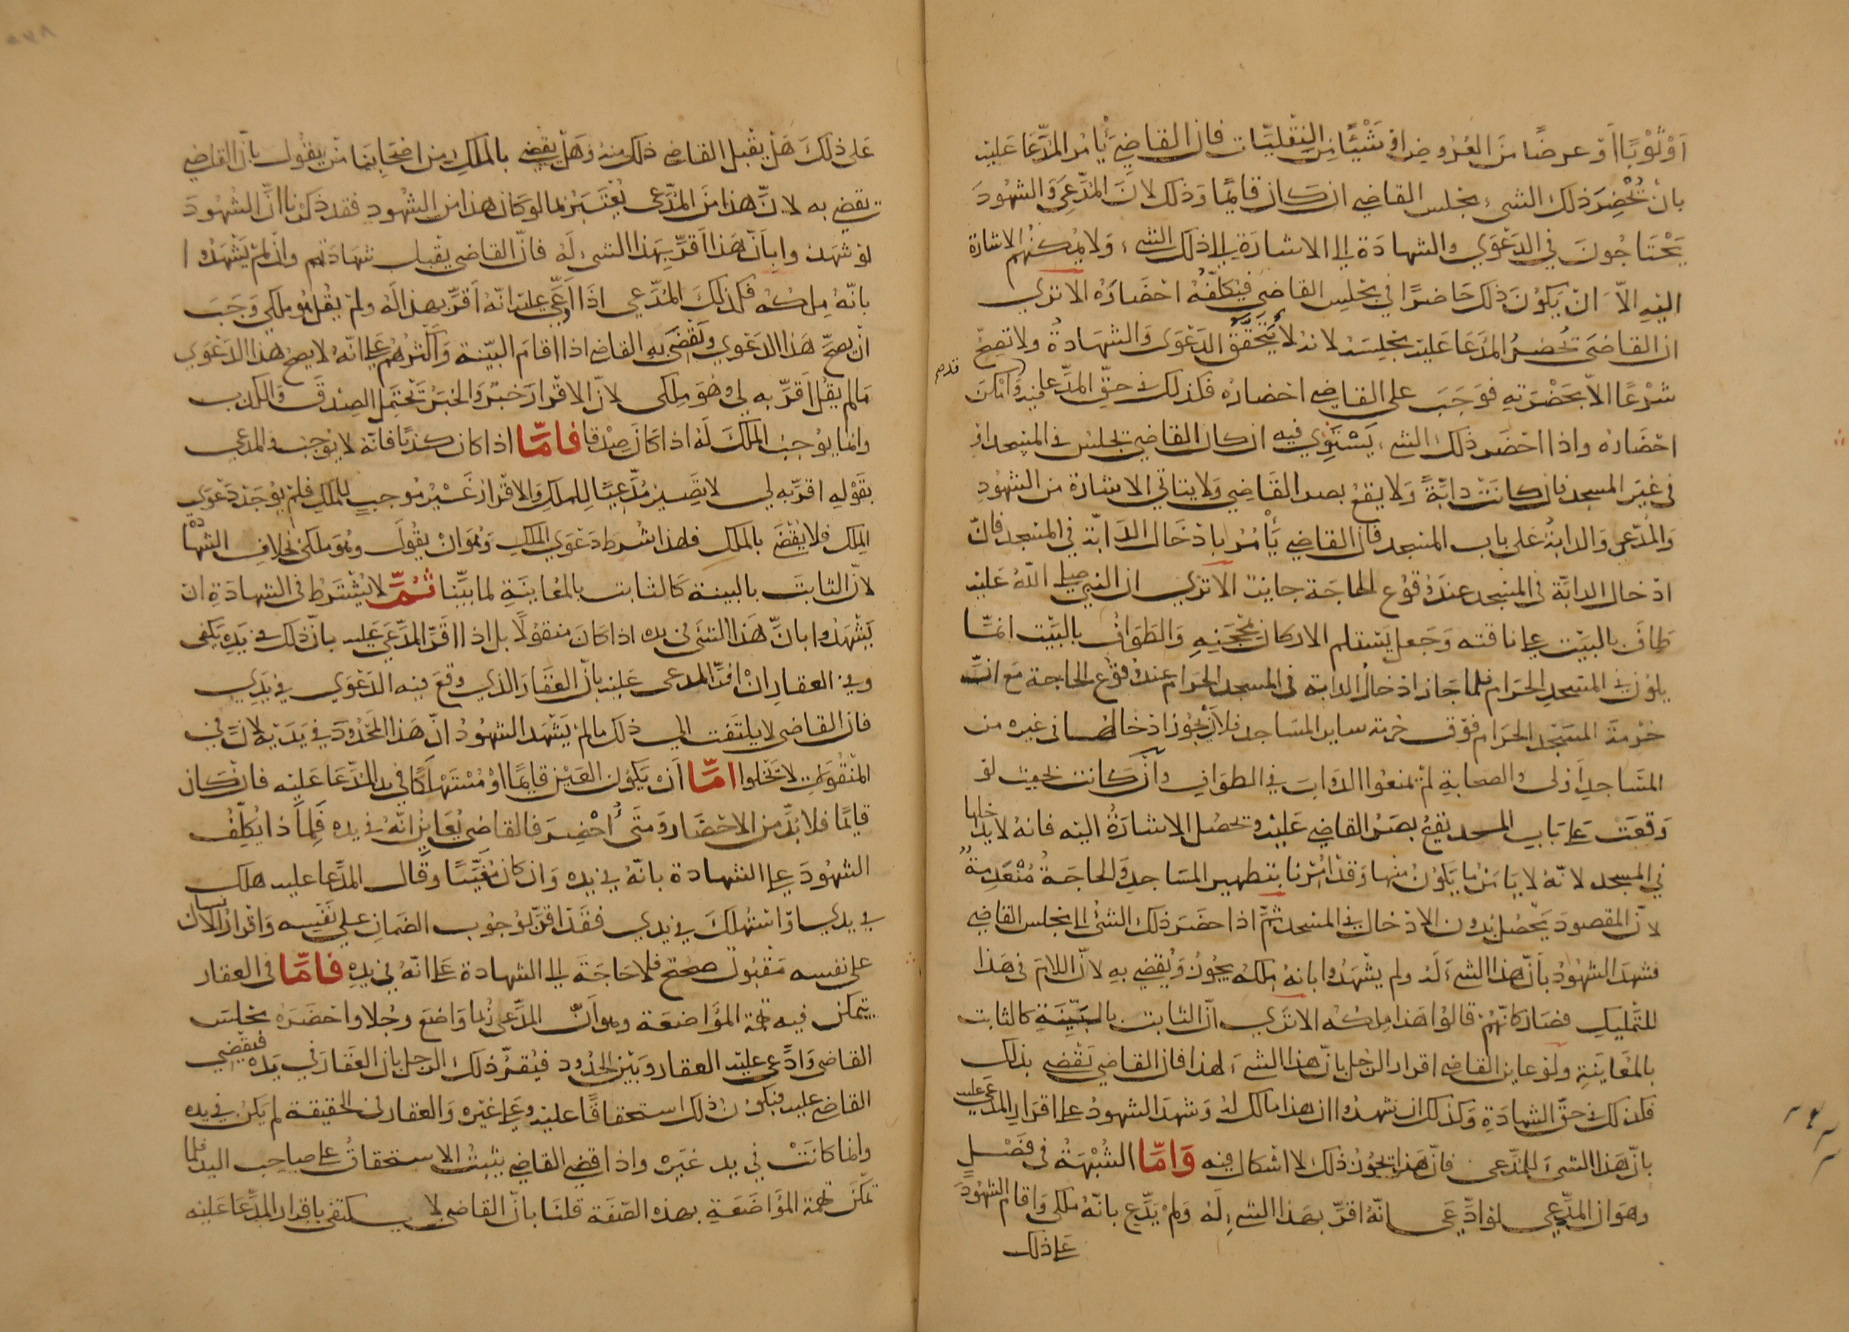 اَوْ ثَوْبًا اَوْ عرضًا مَنَ العُرُوضِ اوْ شَيْئًا مِنَ النقليّات فان القاضِي يَأمُر المدَّعَا عَليْه
بانْ تُحْضِرَ ذلك الشىء بمجلس القاضِى ان كَانَ قايمًا وَذلك لانَ المدّعِىَ وَالشهُودَ
يَحْتَاجُونَ فى الدَعْوَي والشهادَة الى الاشارَةِ الى ذلك الشىء وَلا يمكنهم الاشارة
اليْهِ الاّ اَنّ يَكُوْنَ ذلك حَاضرًا في مجلس القاضِى فيكلّفُه احْضَارَهُ الا تري
ان القاضىَ يُحضرُ المدَعَا عَليْه بمجلسه لانه لا يَتَحَقّقُ الدَعْوَى وَالشهَادةُ ولا تصحّ
شرْعًا الاّ بحَضْرَتِهِ فوَجَبَ على القاضِى احضارُهُ فكذلك في حقّ المدَّعا عليْه وَامْكنَ
قدم
احْضَارهُ واذا احْضَر ذلك الشىء يَسْتوي فيه ان كان القاضِى يجلسُ فى المسْجد اوْ
فى غيْرِ المسجد فان كانَتْ دابّةً وَلا يقعُ بصر القاضِى وَلا يتاتّى الاشارة من الشهُودِ
وَالمُدّعي وَالدابة عَلى باب المسْجد فان القاضِى يَأمُر بادخَال الدَابّة في المسْجد فانّ
ادْخال الدابَّة فى المسْجد عندَ وُقُوع الحَاجَة جايزٌ الا تَرى ان النبىّ صلى اللهُ عَليْه
طافَ بالبَيْت على ناقته وَجَعل يَسْتلم الاركان بمحجَنِهِ وَالطَوَافُ بالبَيْت انمّا
يكون في المسْجد الحَرام فلما جَاز ادْخالُ الدابة فى المسْجد الحَرام عند وقوْع الحَاجة مَعَ انّ
حُرْمَةَ المسْجِد الحَرام فوْقَ حُرمة ساير المسَاجد فلان يَجُوْز ادْخالها فى غيره من
المسَاجدِ اَوْلى والصحَابة لمْ يمنعُوا الدَوابَ في الطوَافِ وانْ كَانت بحيث لوْ
وَقَعَتْ عَلى بَاب المسجد يَقعُ بصرُ القاضِي عَليْه وتحصُل الاشارَةُ اليْه فانهُ لا يدْخلها
في المسجد لانّهُ لا يامَنُ ما يكون منها وَقدْ اُمِرْنا بتطهير المسَاجدِ وَالحاجَةُ مُنْعَدِمةٌ
لانّ المقصُودَ يَحْصُل بدون الادْخال في المسْجد ثمَّ اذا حضَرَ ذلك الشىْءُ الى مجلس القاضِى
فشهدَ الشهُوْدُ بانَّ هذا الشىءَ لهُ ولم يشْهَدُوا بانه مِلكهُ يجُوْز وَيُقضِى بهِ لانّ اللامَ فى هَذا
للتّمليك فصَارَ كانّهُمْ قالوْا هَذا مِلكهُ الا تري انّ الثابتَ بالبَيّنَةِ كالثابت
بالمعَاينَةِ وَلوْ عَاينَ القاضِى اقرارَ الرجُل بانّ هذا الشىءَ لهذا فان القاضى يَقْضِي بذلك
فكذلك في حقّ الشهادَةِ وكذلك ان شهدُوا ان هذا مالك لهُ وَشهدَ الشهودُ على اقرَارِ المدّعَى عليه
بانّ هَذا الشىْءَ للمدّعي فانّ هَذا يَجُوْز ذلك لا اشكال فيه وَامّا الشُبْهَةُ في فَصْلٍ
وهوَ ان المدّعِي لوْ ادَّعَى انّهُ اقرَّ بهَذا الشىءِ لهُ وَلمْ يدَّعِ بانّهُ ملكى وَاقامَ الشهُودَ
عَلى ذلك
عَلى ذلكَ هَلْ يَقْبَل القاضِى ذلك منهُ وَهَلْ يَقضِي بالمَلكِ من اصْحَابنَا مَنْ يقُول بانّ القاضِى
يَقضِى به لانَّ هذا منَ المدَّعي يُعْتَبَرُ بما لوْ كان هذا من الشهُودِ فقد ذكرْنا انَّ الشهُودَ
لوْ شهدُوا بانّ هَذا اَقرَّ بهذا الشىء لهُ فانّ القاضى يَقْبل شهادتهُم وانْ لمْ يَشْهَدُوا
بانّهُ مِلكهُ فكذلكَ المدَّعي اذَا ادَّعَى عليْه انّهُ اَقرَّ بهذا لهُ ولمْ يَقُلْ هُوَ ملكي وَجَبَ
انْ يصحَّ هَذا الدَعْوي ويَقْضِي بهِ القاضِى اذا اقامَ البيّنة وَاكثرهُم عَلى انّهُ لا يصحُ هذا الدَعْوَي
مَا لمْ يقُل اَقرَّ به لى وَهُوَ مِلكى لانّ الاقرارَ خَبَرٌ وَالخبرُ يَحْتَمِل الصِدْقَ وَالكذب
وانما يُوْجبُ الملكَ لَهُ اذا كَانَ صِدْقًا فامّا اذا كان كذبًا فانّهُ لا يُوْجبُ والمدعي
بقَوْلِهِ اقرَّ به لي لا يَصِير مُدَّعيًا للملكِ وَالاقرارُ غَيْرُ مُوجبٍ للملكِ فلمْ يُوْجَدْ دَعْوَي
الملك فلا يُقْضَى بالملكِ فلهذا شُرط دَعْوَي الملكِ وَهُوَ انْ يقُولَ وهُوَ ملكى بخلافِ الشهَادة
لانّ الثابتَ بالبينة كَالثابت بالمُعَاينَةِ لما بيّنا ثمَّ لا يُشْتَرَط في الشهادَةِ ان
يَشْهَدُوا بانَّ هَذا الشىْءَ فى يدِهِ اذا كانَ منقُوْلاً بل اذا اقرّ المدّعَى عَليه بانّ ذلك في يَدِهِ يكفى
وفي العقار انْ اقرَّ المدعى عَليْه بانّ العقَارَ الذِي وقع فيه الدَعْوَي في يَدي
فان القاضى لا يلتفت الى ذلك ما لمْ يَشْهَد الشهُودُ انّ هَذا المحْدُودَ في يَدَيْهِ لانّ في
المنقُولاتِ لا يَخْلوا امّا اَنْ يَكُوْن العَيْن قايمًا اوْ مُسْتَهْلكًا في يد المدّعَا عَليْه فان كان
قايمًا فلا بدَّ من الاحْضَار وَمتَى اُحْضِرَ فالقاضِى يُعَاينُ انّهُ في يدِهِ فَلمَاذا يُكلّفُ
الشهُودَ على الشهادة بانّهُ في يدِهِ وَان كانَ مُغيّبًا وَقال المدَّعا عليه هلك
في يدي اوْ اسْتهلكَ في يدي فقَدْ اقرَّ بوجُوب الضمَانِ على نفْسِه وَاقرارُ الانسان
على نفسِه مَقبُولٌ صحيح فلا حَاجَةَ الى الشهادة عَلى انّهُ في يدِهِ فامّا في العقار
يتمكن فيه تهمة المُوَاضعَة وهوَ اَنّ المدَّعي رُبما وَاضعَ رجُلا وَاحْضَرَهُ بمجلس
القاضى وَادَّعى عليْه العقارَ وَبَيّنَ الحدُود فيُقرُّ ذلك الرجل بان العقارَ في يَدِه فيقضِي
القاضِى عليه فيكوْن ذلك استحقاقًا عليْه وعَلى غيْره وَالعقار في الحقيقة لم يَكن في يدِه
وانما كانَتْ في يد غيَره وَاذا قضى القاضِي يثبتُ الاستحقاقُ على صاحب اليد فلما
تمكّنَ تهمة المُوَاضَعَةِ بهذه الصِفَة قلنَا بانّ القاضِى لا يكتفى باقرار المدَّعَا عَليْه